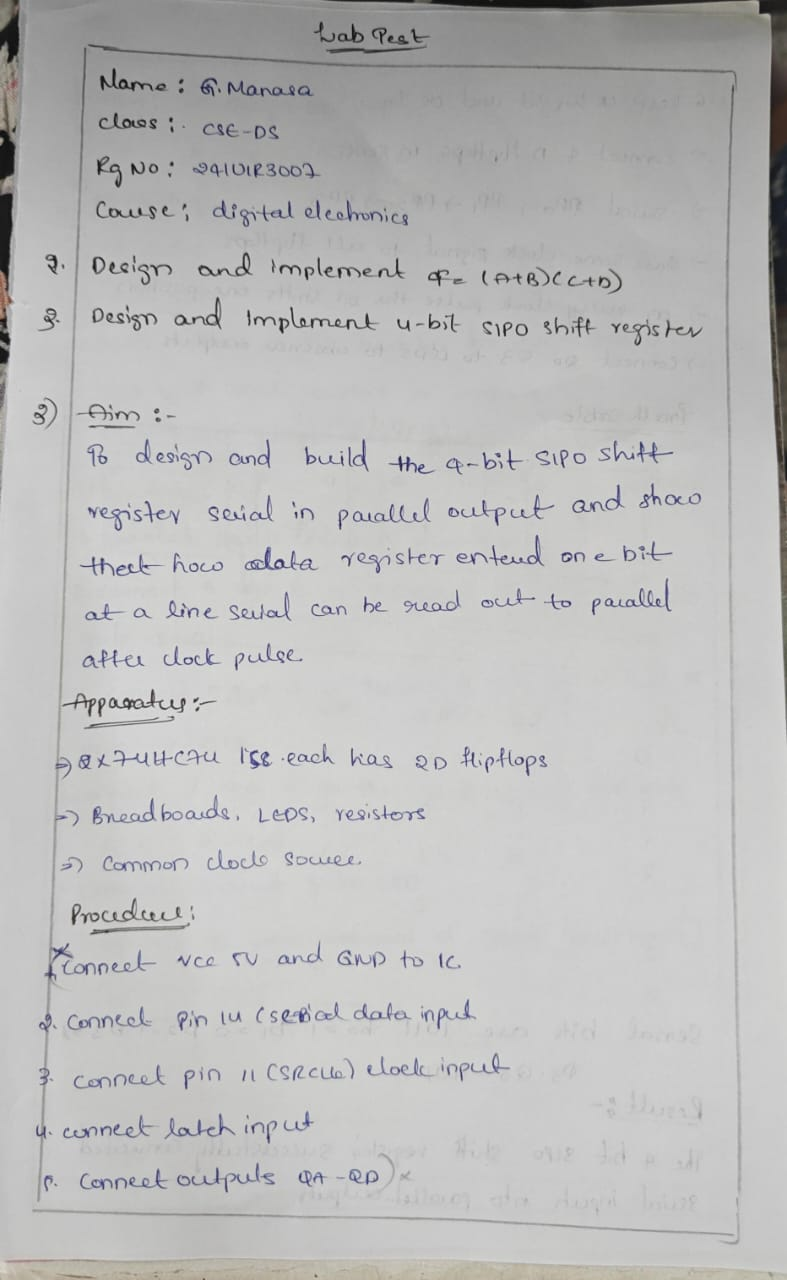 Lab Test
Name : G. Manasa
class : CSE-DS
Rg No : 24101R3007
Cause : digital electronics
2. Design and implement F = (A+B)(C+D)
3. Design and Implement 4-bit SIPO shift register
3) Aim :-
To design and build the 4-bit SIPO shift
register serial in parallel output and show
that how data register entend one bit
at a line serial can be read out to parallel
after clock pulse
Apparatus :-
=> 2x74HC74 each has 2D flipflops
=> Breadboards, LEDS, resistors
=> Common clock source
Procedure :
1. Connect VCC 5V and GND to IC
2. Connect Pin 14 (serial data input
3. connect pin 11 (SRCLK) clock input
4. connect latch input
5. Connect outputs QA - QD)